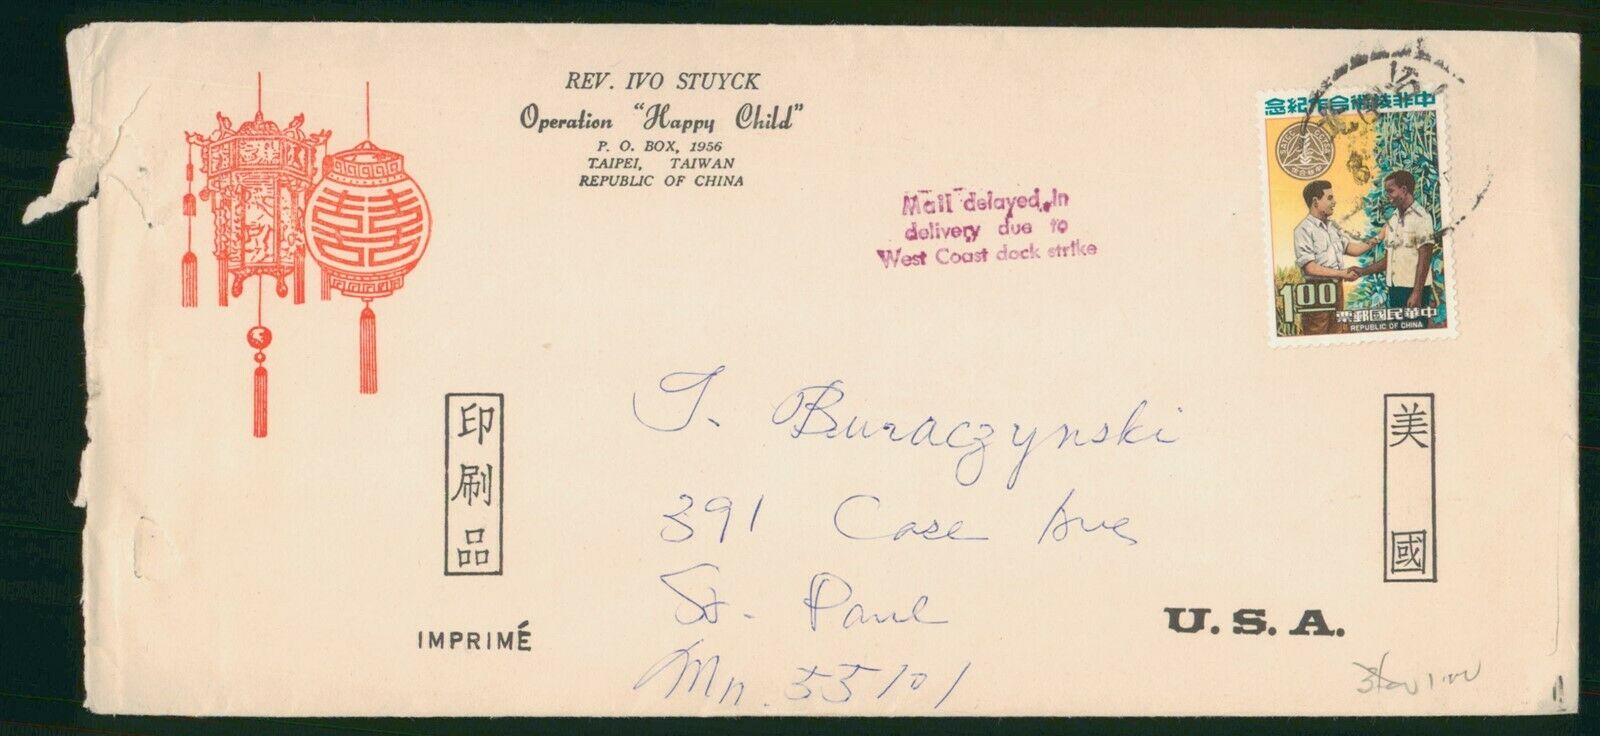 REV. IVO STUYCK
Operation "Happy Child"
P. O. BOX, 1956
TAIPEI, TAIWAN
REPUBLIC OF CHINA
Mail delayed in
delivery due to
West Coast dock strike
念紀作合術技非中
1.00
票郵國民華中
REPUBLIC OF CHINA
印刷品
IMPRIMÉ
J. Buraczynski
391 Case Ave
St. Paul
Mn. 55101
美國
U. S. A.